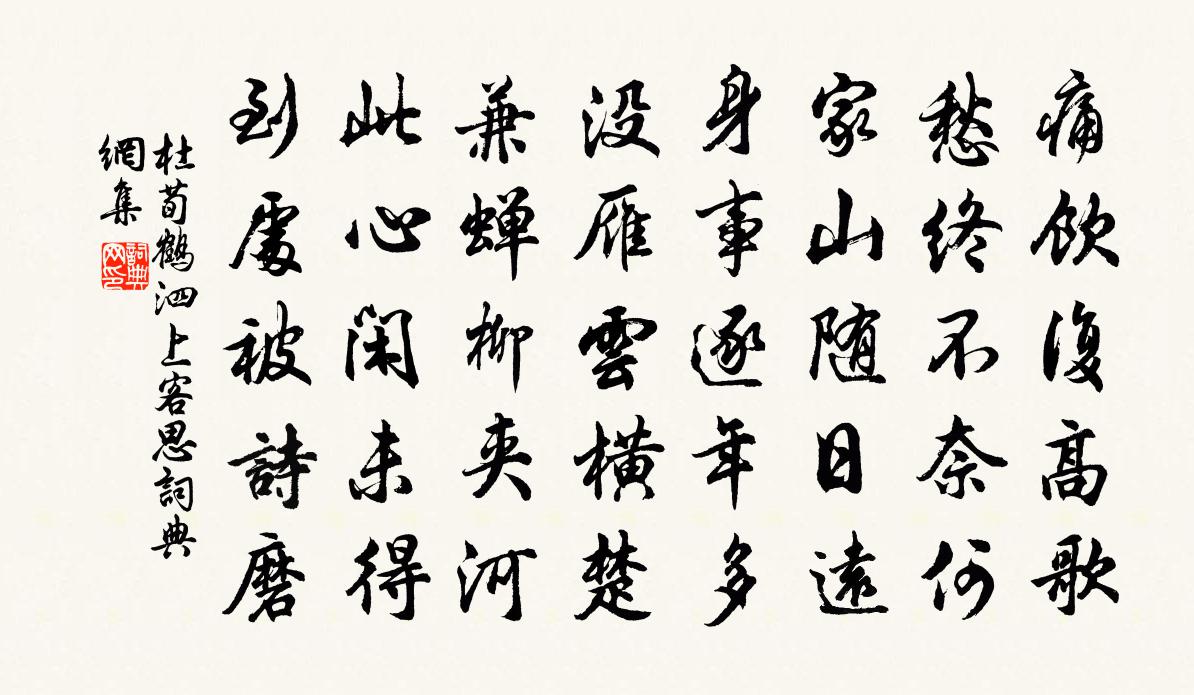 痛飲復高歌
愁終不奈何
家山随日遠
身事逐年多
没雁雲橫楚
兼蟬柳夾河
此心閑未得
到處被詩磨
杜荀鶴泗上客思詞典
網集
詞典
网印